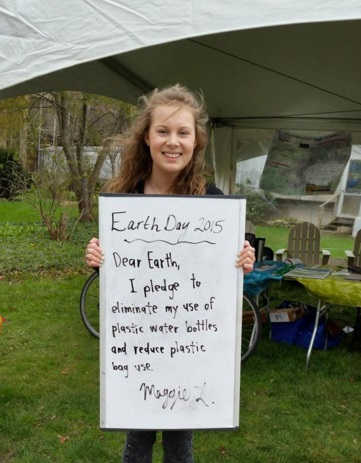 Earth Day 2015
Dear Earth,
I pledge to
eliminate my use of
plastic water bottles
and reduce plastic
bag use.
Maggie L.